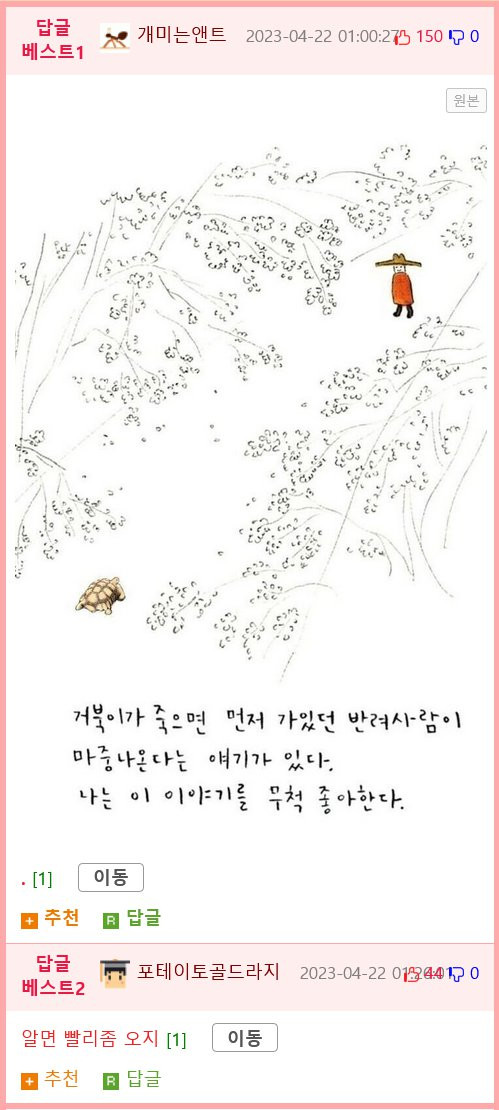 답글
베스트1
개미는앤트 2023-04-22 01:00:27 150 0
원본
거북이가 죽으면 먼저 가있던 반려사람이
마중나온다는 얘기가 있다.
나는 이 이야기를 무척 좋아한다.
. [1] 이동
추천 R 답글
답글
베스트2
포테이토골드라지 2023-04-22 44 0
알면 빨리좀 오지 [1] 이동
추천 R 답글